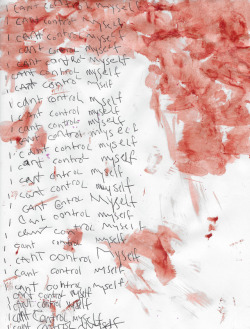 I cant control myself
I cant control myself
I cant control myself
I cant control myself
I cant control myself
I cant control myself
I cant control myself
I cant control myself
I cant control myself
I cant control myself
I cant control myself
I cant control myself
I cant control myself
I cant control myself
I cant control myself
I cant control myself
I cant control myself
I cant control myself
I cant control myself
I cant control myself
I cant control myself
I cant control myself
I cant control myself
I cant control myself
I cant control myself